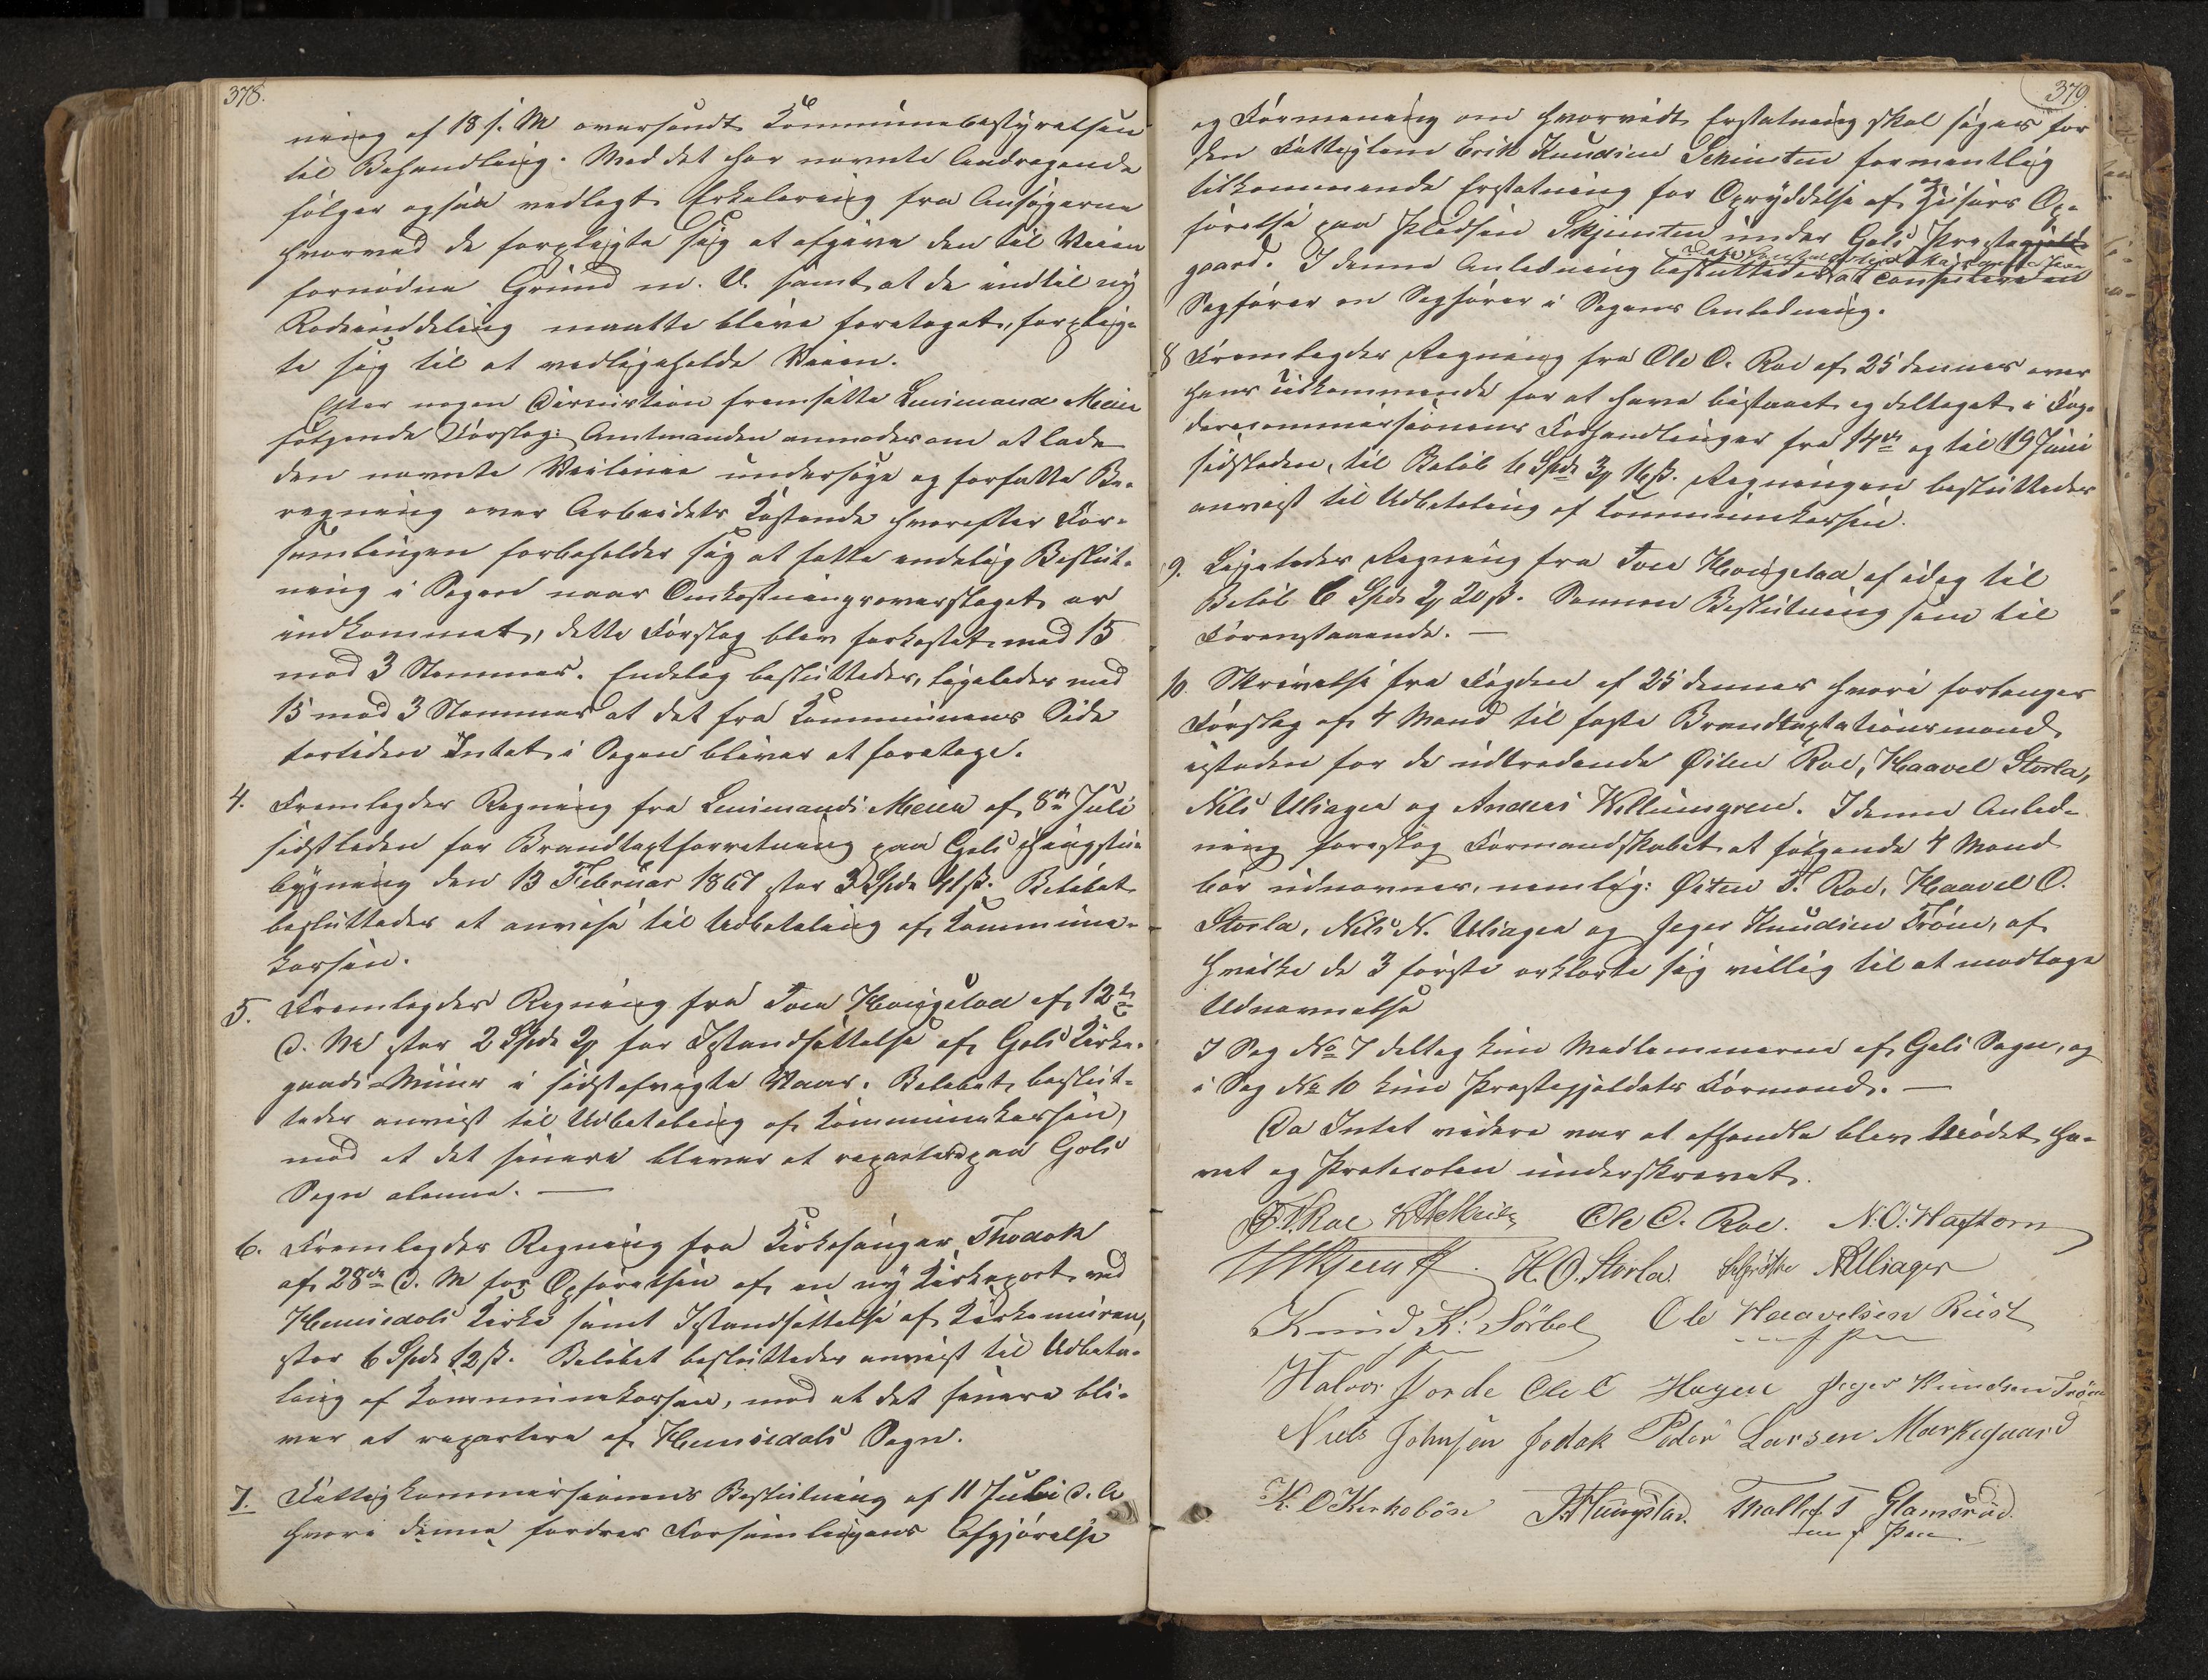 378.
ning af 18 f. M oversendt Kommunebestyrelsen
til Behandling. Med det her nævnte Andragende
følger ogsaa vedlagt Erkelæring fra Ansøgerne
hvorved de forpligte sig at afgive den til Veien
fornødne Grund m. V. samt at de indtil ny
Rodeinddeling maatte blive foretaget, forplig-
te sig til at vedligeholde Veien.
Efter nogen Discustion fremsatte Lensmand Meier
følgende Forslag: Amtmanden anmodes om at lade
den nævnte Veilinie undersøge og forfatte Be-
regning over Arbeidets Kostende hvorefter For-
samlingen forbeholder sig at fatte endelig Beslut-
ning i Sagen naar Omkostningsoverslaget er
indkommet, dette Forslag blev forkastet med 15
mod 3 Stemmer. Endelig besluttedes, ligeledes med
15 mod 3 Stemmer at det fra Kommunens Side
fortiden Intet i Sagen bliver at foretage.
4. Fremlagdes Regning fra Lensmand Meier af 8de Juli
sidstleden for Brandtaxtforretning paa Gols Thingstu-
bygning den 13 Februar 1867 stor 3 Spd 41 ß. Beløbet
besluttedes at anvise til Udbetaling af Kommune-
kassen.
5. Fremlagdes Regning fra Tven Hougstad af 12te
d. M stor 2 Spd 2 for Istandsættelse af Gols Kirke-
gaards Muur i sidstafvigte Vaar. Beløbet beslut-
tedes anvist til Udbetaling af Kommunekassen,
med at det senere blever at reparterd paa Gols
Sogn alenne. —
6. Fremlagdes Regning fra Kirkesanger Thodok
af 28de d. M for Opførelsen af en ny Kirkeport ved
Hemsedals Kirke samt Istandsættelse af Kirkemuren,
stor 6 Spd 12 ß. Beløbet besluttedes anvist til Udbeta-
ling af Kommunekassen, med at det senere bli-
ver at repartere af Hemsedals Sogn.
7. Fattigkommissionens Beslutning af 11 Juli d. A
hvori denne fordrer Forsamlingens Afgjørelse
379.
og Formening om hvorvidt Erstatning skal søges for
den Fattiglem Erik Knudsen Skinsten formentlig
tilkommende Erstatning for Opryddelse af og Huses Op-
førelse paa Pladsen Skjinsten under Gols Præstegjeld-
gaard. I denne Anledning besluttedes at consulere en
Sagfører en Sagfører i Sagens Anledning.
8 Fremlagdes Regning fra Ole O. Roe af 25 dennes over
hans tilkommende for at have bistaaet og deltaget i Fog-
derecommissionens Forhandlinger fra 14de og til 19 Juni
sidstleden, til Beløb 6 Spd 3 16 ß. Regningen besluttedes
anvist til Udbetaling af Kommunekassen.
9. Ligeledes Regning fra Tven Hougstad af idag til
Beløb 6 Spd 2 20 ß. Samme Beslutning som til
Forenstaaende. —
10 Skrivelse fra Fogden af 25 dennes hvori forlanges
Forslag af 4 Mænd til faste Brandtaxtationsmænd
isteden for de udtredende Østen Roe, Haavel Storla,
Nils Uliager og Anders Villumgren. I denne Anled-
ning foreslog Formandskabet at følgende 4 Mænd
bør udnævnes, nemlig: Østen T. Roe, Haavel O.
Storla, Nils N. Uliager og Jeger Knudsen Trøim, af
hvilke de 3 første erklærte sig villig til at modtage
Udnævnelse
I Sag No 7 deltog kun Medlemmerne af Gols Sogn, og
i Sag No 10 kun Præstegjeldets Formænd. —
Da Intet videre var at afhandle blev Mødet hæ-
vet og Protocolen underskrevet.
Ole O. Roe. N. O. Haftorn
H. O. Storla. NUliager
Knud K. Sørbel Ole Haavelsen Rust
Halvor Jorde Ole O Hagen Jeger Knudsen Trøim
Niels Johnsen Jodok Peder Larsen Markegaard
K. O Kirkebøn T. Hungstad. Thollef T Glamsrød.